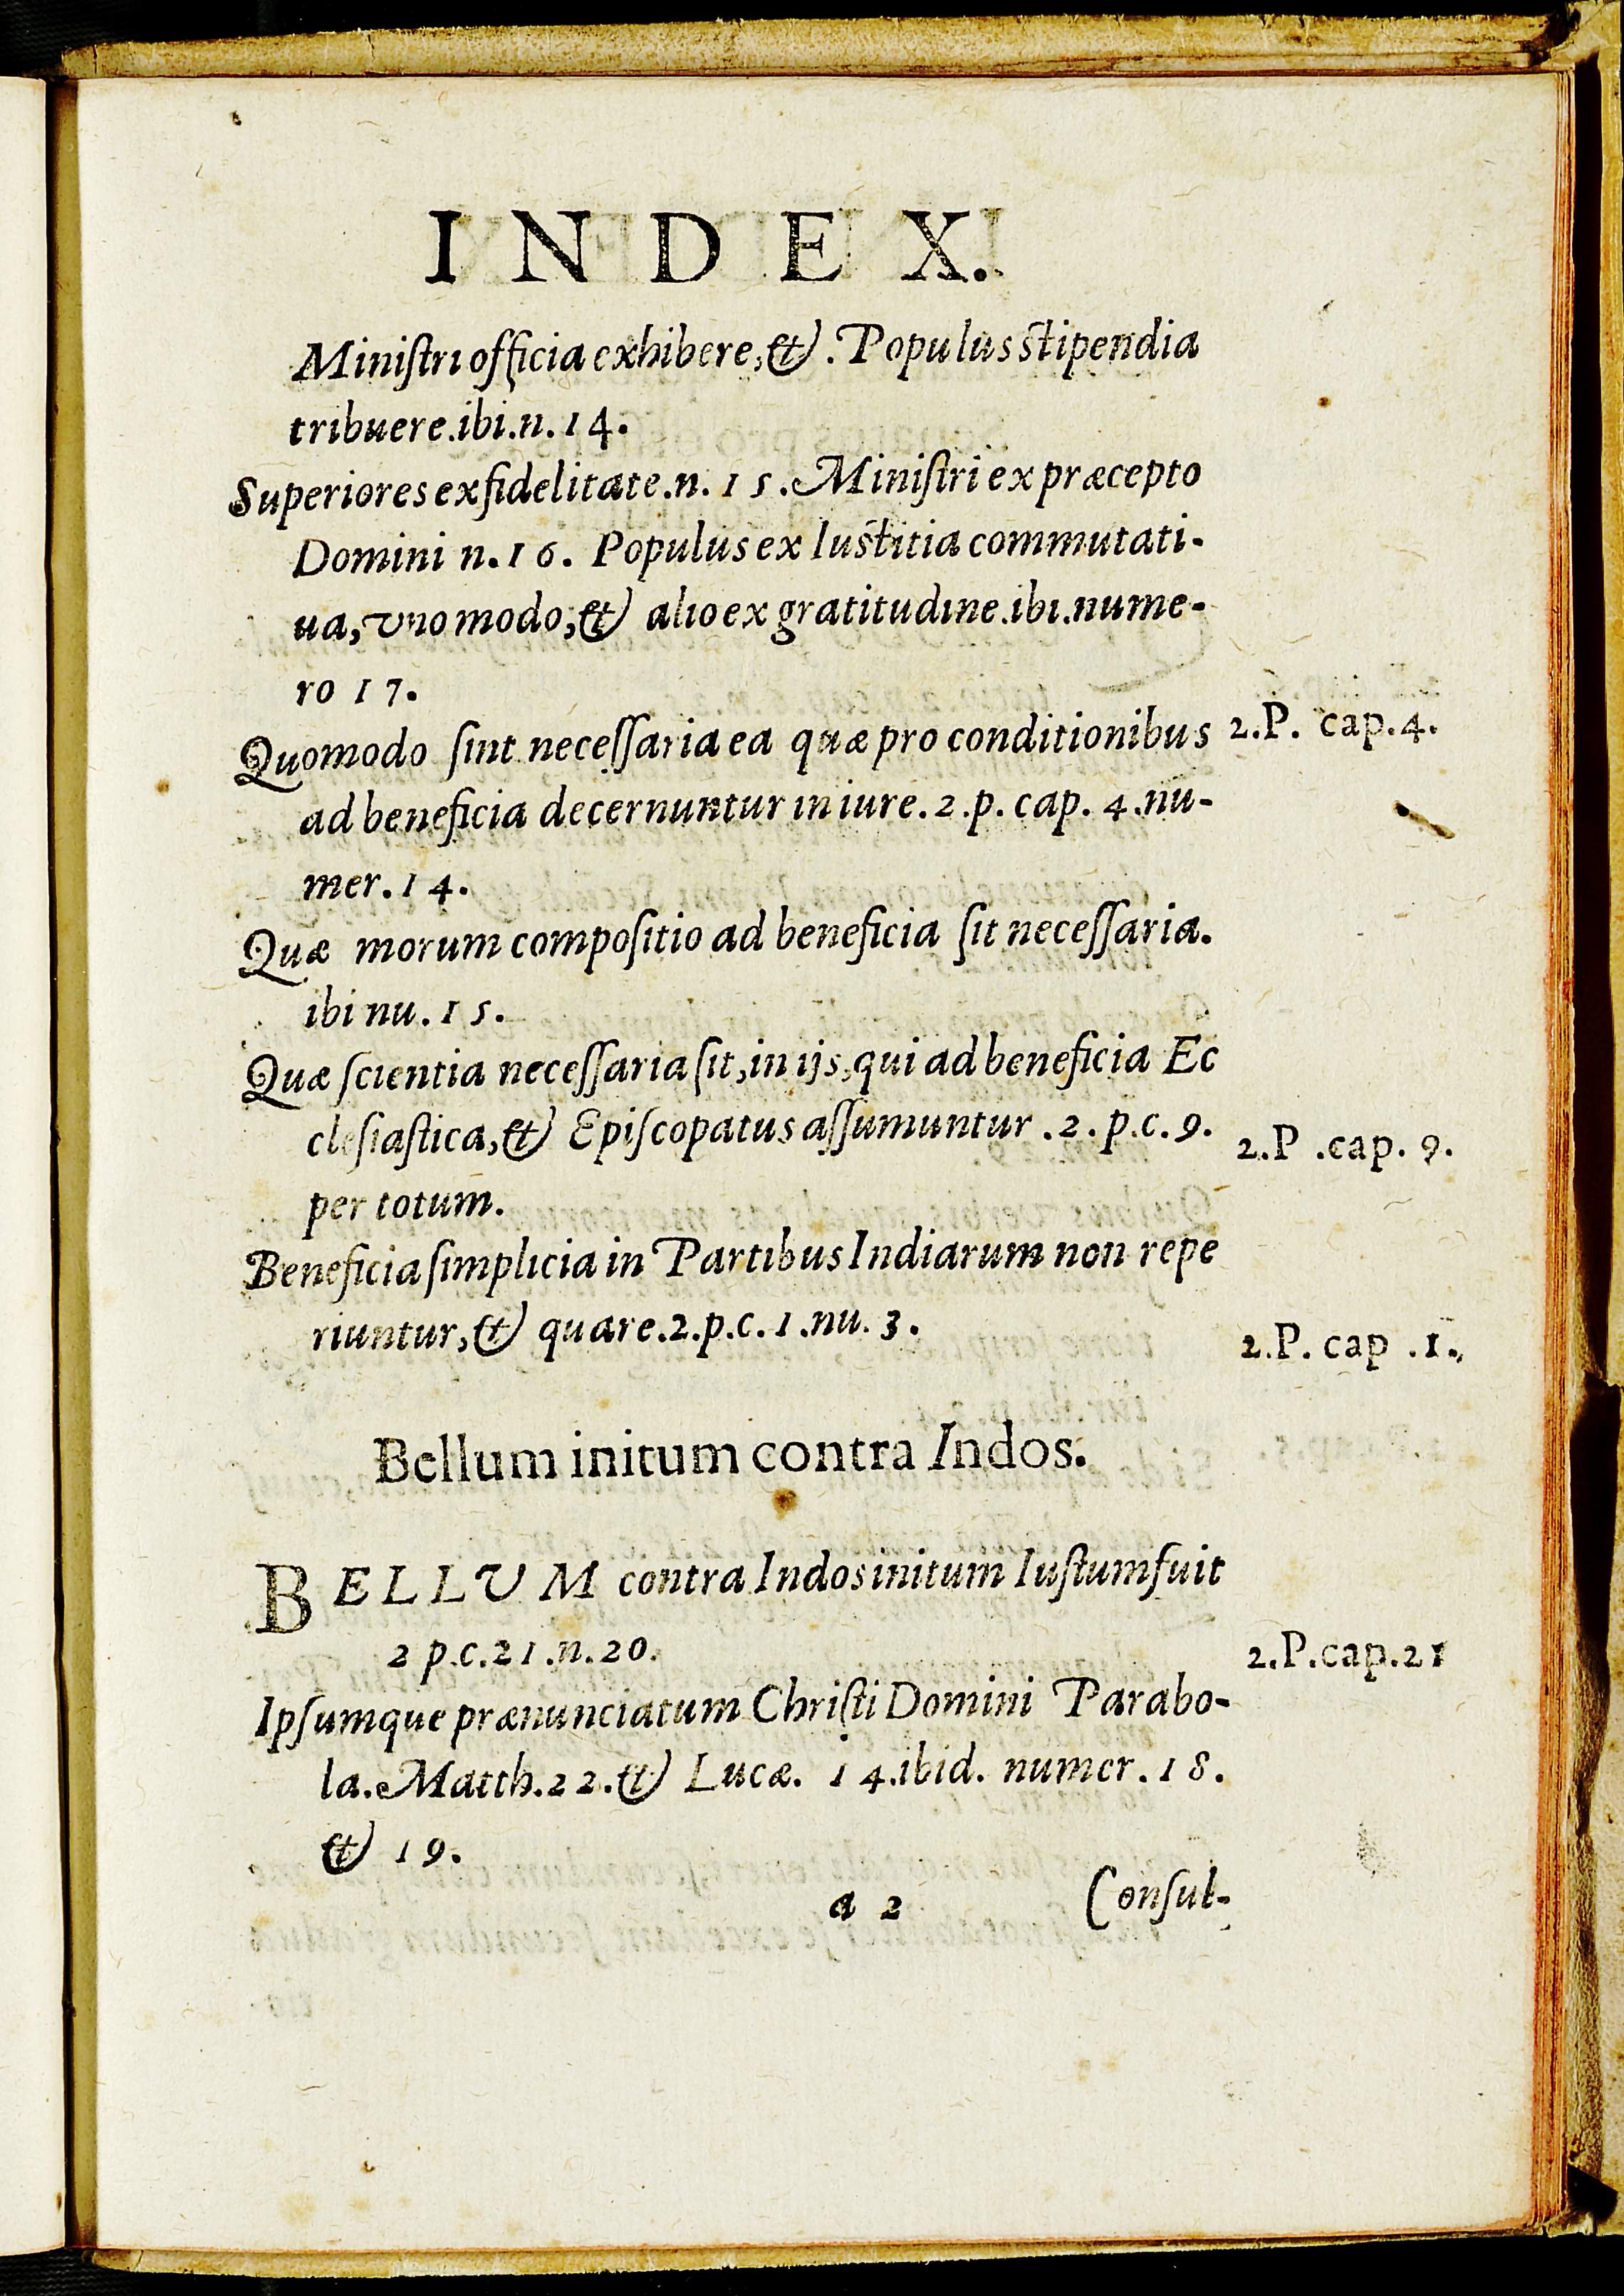 INDEX.
Miniſtri officia exhibere, &. Populus ſtipendia
tribuere. ibi. n. 14.
Superiores ex fidelitate. n. 15. Miniſtri ex præcepto
Domini n. 16. Populus ex Iuſtitia commutati-
ua, vno modo, & alio ex gratitudine. ibi. nume-
ro 17.
Quomodo ſint neceſſaria ea quæ pro conditionibus
2.P. cap. 4.
ad beneficia decernuntur in iure. 2. p. cap. 4. nu-
mer. 14.
Quæ morum compoſitio ad beneficia ſit neceſſaria.
ibi nu. 15.
Quæ ſcientia neceſſaria ſit, in ijs, qui ad beneficia Ec
cleſiaſtica, & Epiſcopatus aſſumuntur. 2. p. c. 9.
2.P .cap. 9.
per totum.
Beneficia ſimplicia in Partibus Indiarum non repe
riuntur, & quare. 2. p. c. 1. nu. 3.
2.P. cap .1.
Bellum initum contra Indos.
BELLVM contra Indos initum Iuſtum fuit
2 p. c. 21. n. 20.
2.P.cap.21
Ipſumque prænunciatum Chriſti Domini Parabo-
la. Matth. 22. & Lucæ. 14. ibid. numer. 18.
& 19.
a 2
Conſul-